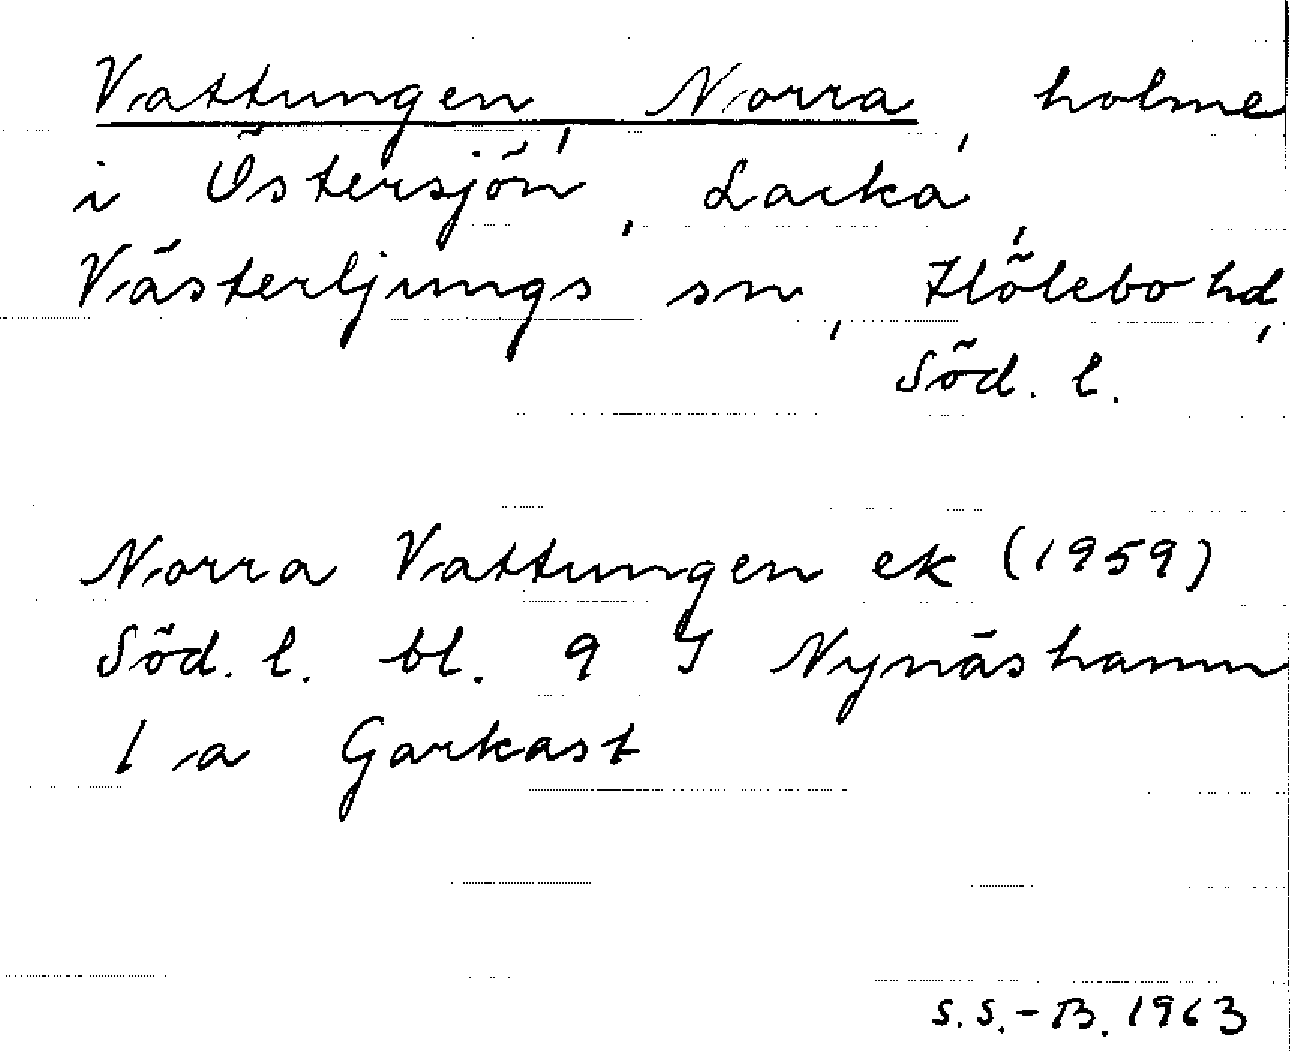 Vattungen, Norra, holme
i Östersjön, Lacka,
Västerljungs sn, Hölebo hd,
Söd. l.
Norra Vattungen ek (1959)
Söd. l. bl. 9 I Nynäshamn
1 a Garkast
S.S.-B. 1963